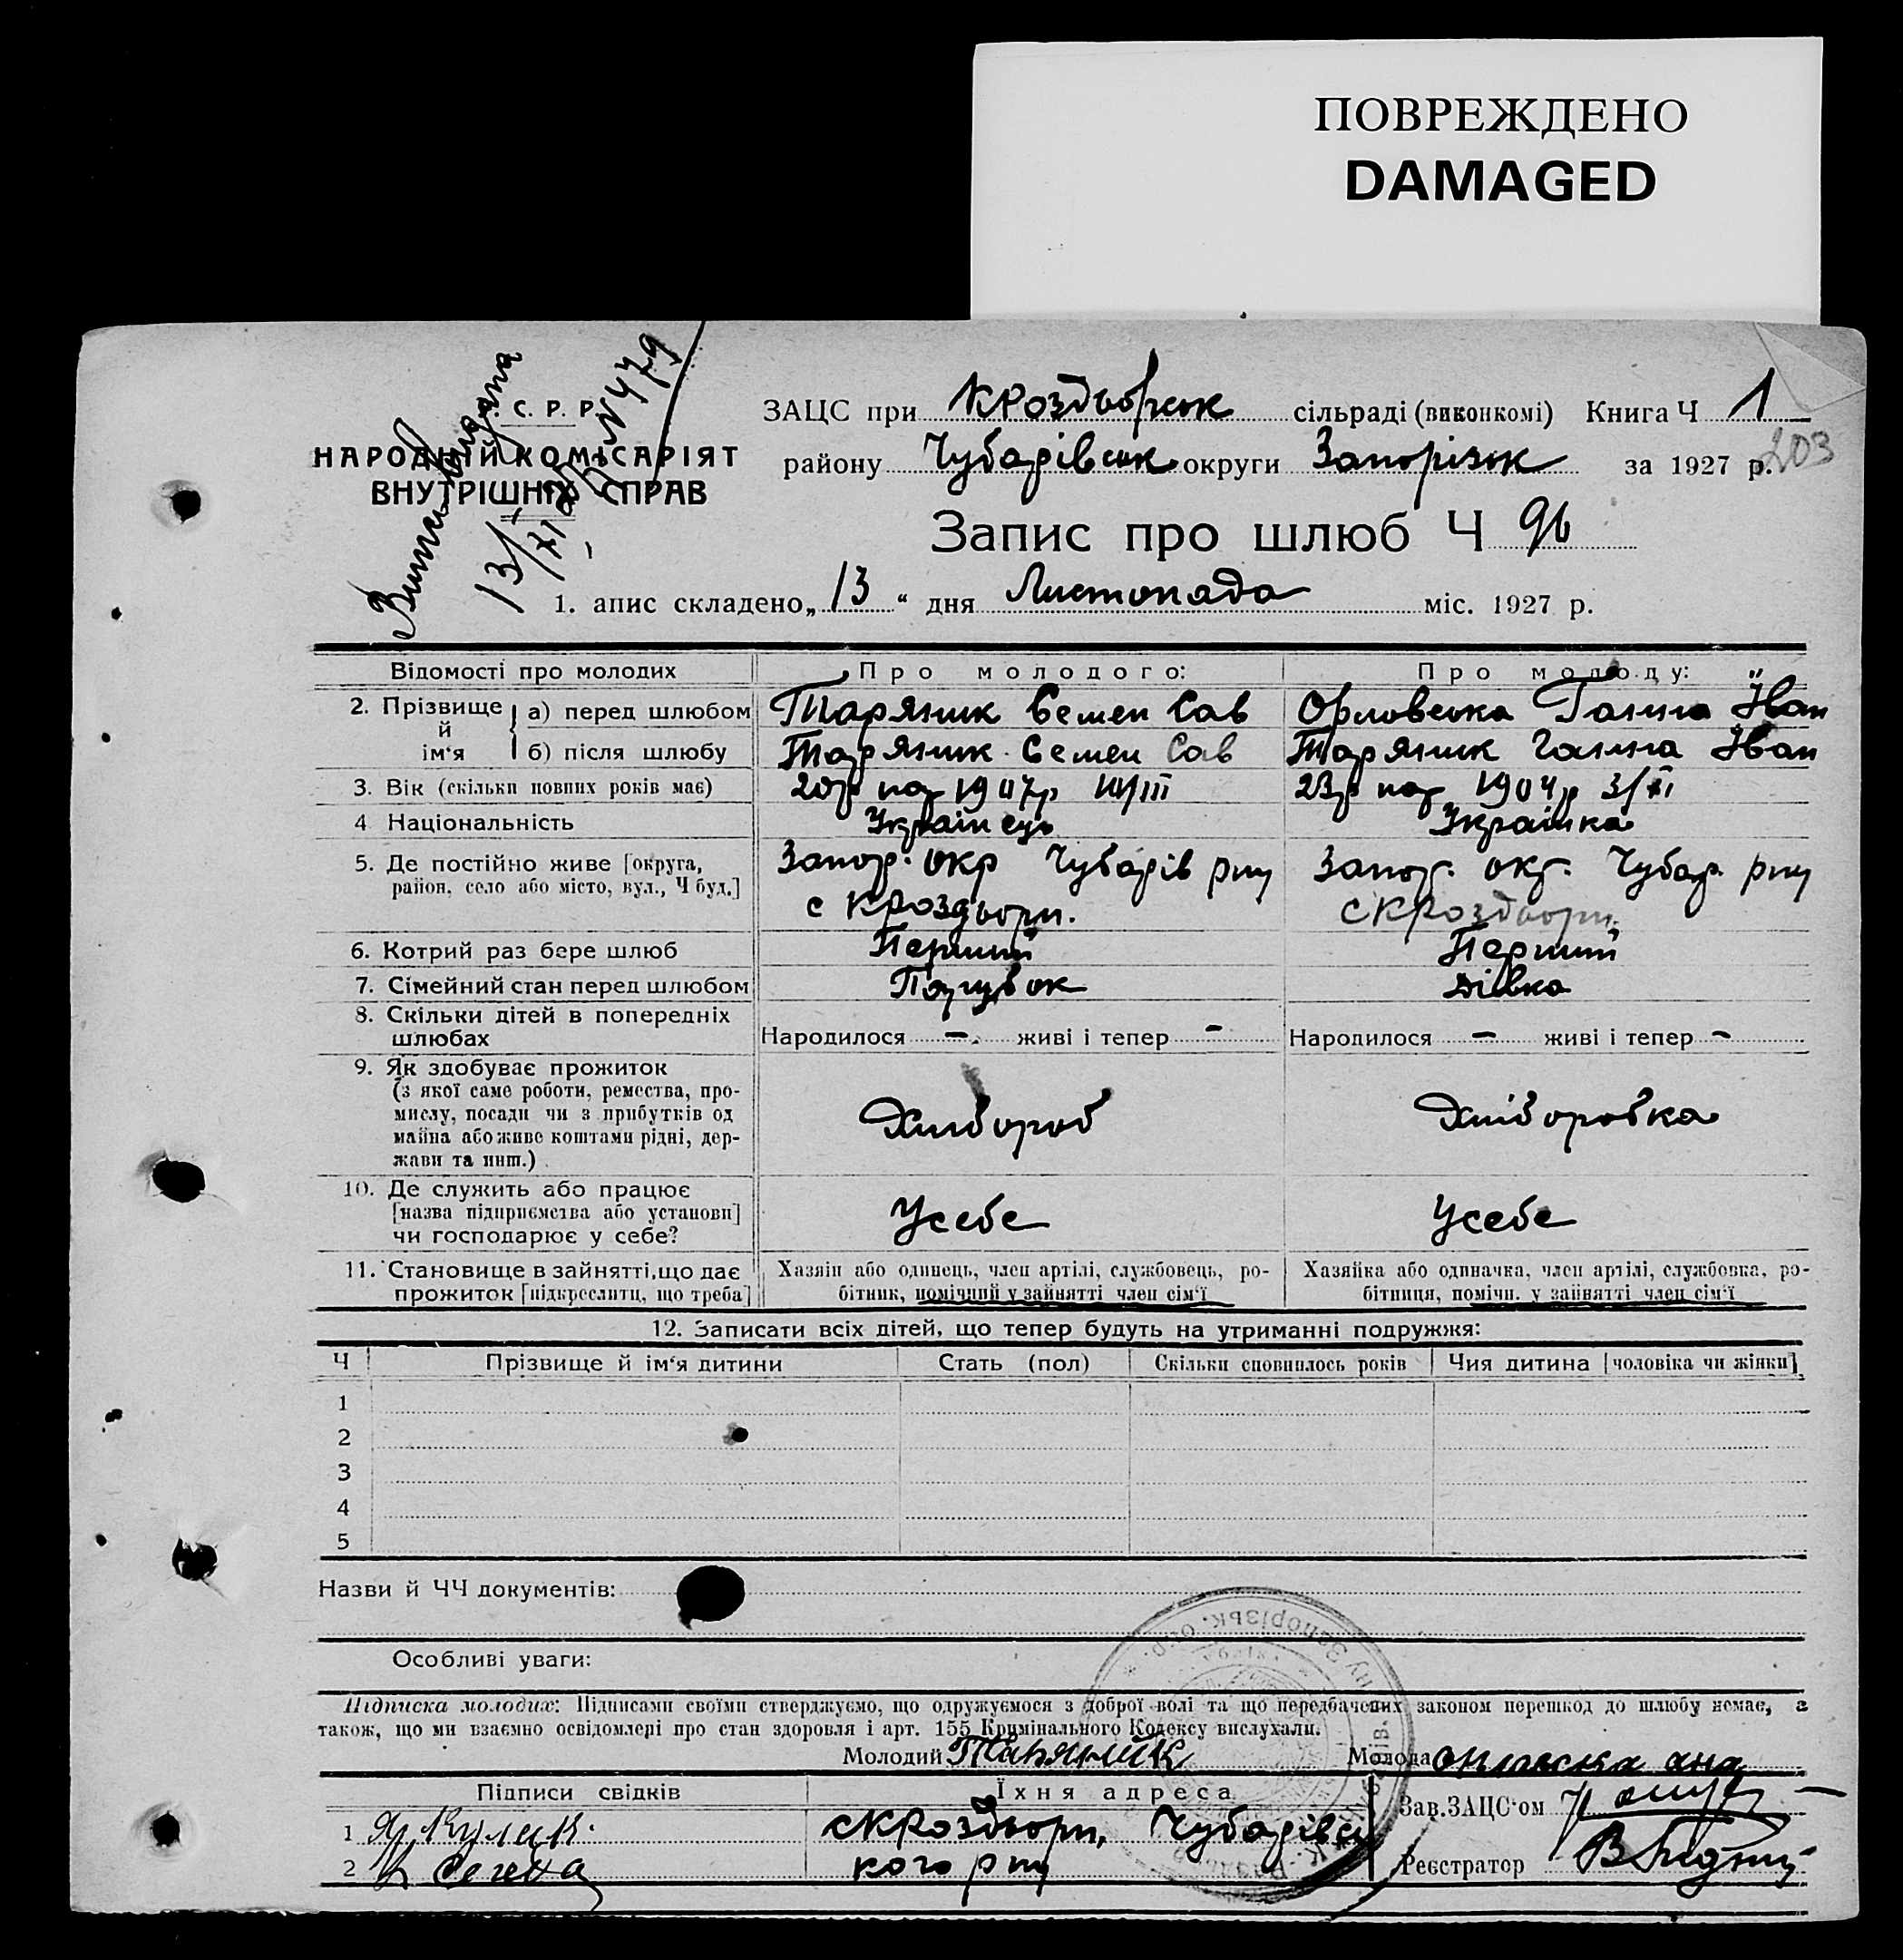 ПОВРЕЖДЕНО
DAMAGED
С. Р. Р.
НАРОДНІЙ КОМІСАРІЯТ
ВНУТРІШНІХ СПРАВ
13/XI N 479
ЗАЦС при КРоздорськ сільраді (виконкомі) Книга Ч 1
району Чубарівськ округи Запорізьк за 1927 р. 203
Запис про шлюб Ч 96
1. апис складено „ 13 “ дня Листопада міс. 1927 р.
Відомості про молодих Про молодого: Про молоду:
2. Прізвище й ім‘я
а) перед шлюбом Таряник Семен Сав Орловська Галина Іван
б) після шлюбу Таряник Семен Сав Таряник Галина Іван
3. Вік (скільки повних років має) 20р нар 1907р III 23р нар 1904р 3/XI
4 Національність Українець Українка
5. Де постійно живе [округа, Запор. окр Чубарів рну Запор. окр. Чубар. рну
район, село або місто, вул., Ч буд.] с КРоздори. с КРоздори.
6. Котрий раз бере шлюб Перший Перший
7. Сімейний стан перед шлюбом Парубок Дівка
8. Скільки дітей в попередніх
шлюбах Народилося – живі і тепер – Народилося – живі і тепер –
9. Як здобуває прожиток
(з якої саме роботи, ремества, про-
мислу, посади чи з прибутків од Хлібороб Хліборобка
майна або живе коштами рідні, дер-
жави та инш.)
10. Де служить або працює
[назва підприємства або установи] Усебе Усебе
чи господарює у себе?
11. Становище в зайнятті, що дає Хазяін або одинець, член артілі, службовець, ро- Хазяйка або одиначка, член артілі, службовка, ро-
прожиток [підкреслити, що треба] бітник, помічний у зайнятті член сім‘ї бітниця, помічн. у зайнятті член сім‘ї
12. Записати всіх дітей, що тепер будуть на утриманні подружжя:
Ч Прізвище й ім‘я дитини Стать (пол) Скільки сповнилось років Чия дитина [чоловіка чи жінки]
1
2
3
4
5
Назви й ЧЧ документів:
Особливі уваги:
Підписка молодих: Підписами своїми стверджуємо, що одружуємося з доброї волі та що передбачених законом перешкод до шлюбу немає, а
також, що ми взаємно освідомлені про стан здоровля і арт. 155 Кримінального Кодексу вислухали.
Молодий Таряник Молода Орловска Ана
Підписи свідків Їхня адреса Зав.ЗАЦС‘ом
1 Кулик с КРоздори, Чубарівсь
2 кого рну Реєстратор
Запорізьк. окр.